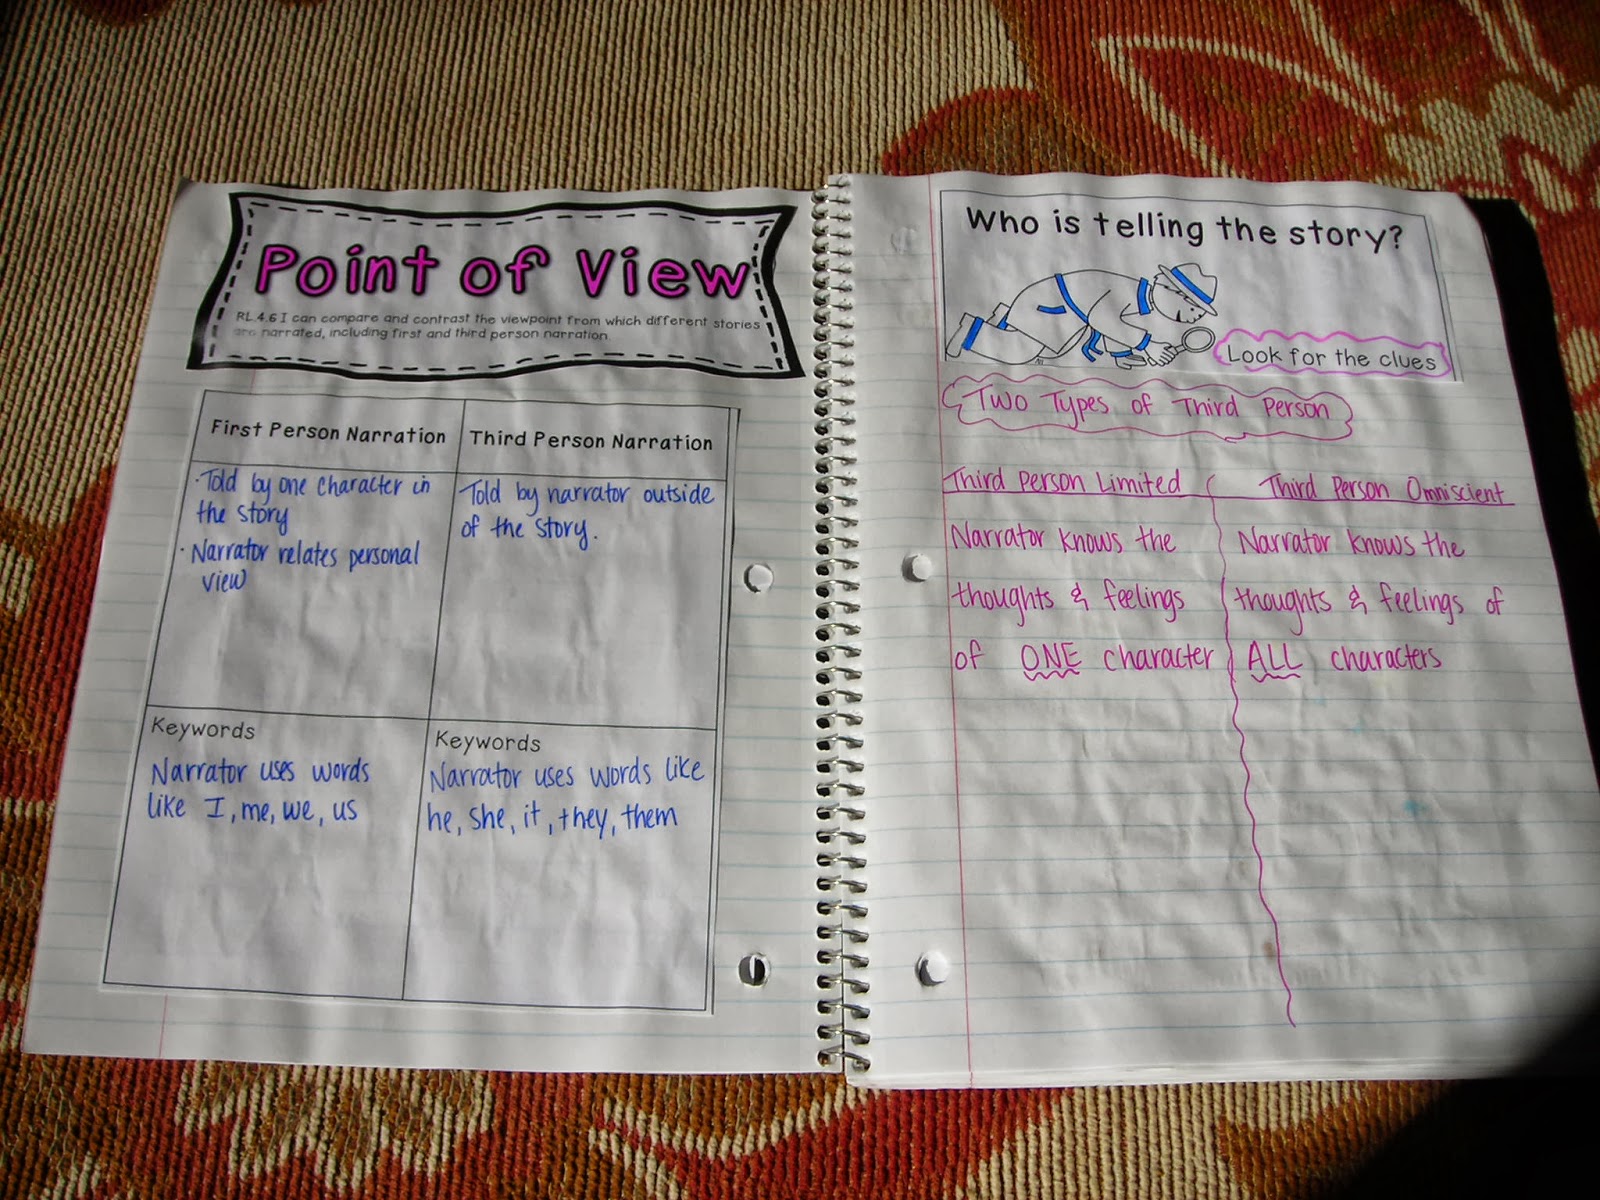 Point of View
RL.4.6 I can compare and contrast the viewpoint from which different stories
are narrated, including first and third person narration
First Person Narration
· Told by one character in
the story
· Narrator relates personal
view
Third Person Narration
Told by narrator outside
of the story.
Keywords
Narrator uses words
like I, me, we, us
Keywords
Narrator uses words like
he, she, it, they, them
Who is telling the story?
Look for the clues
Two Types of Third Person
Third Person Limited
Narrator knows the
thoughts & feelings
of ONE character
Third Person Omniscient
Narrator knows the
thoughts & feelings of
ALL characters